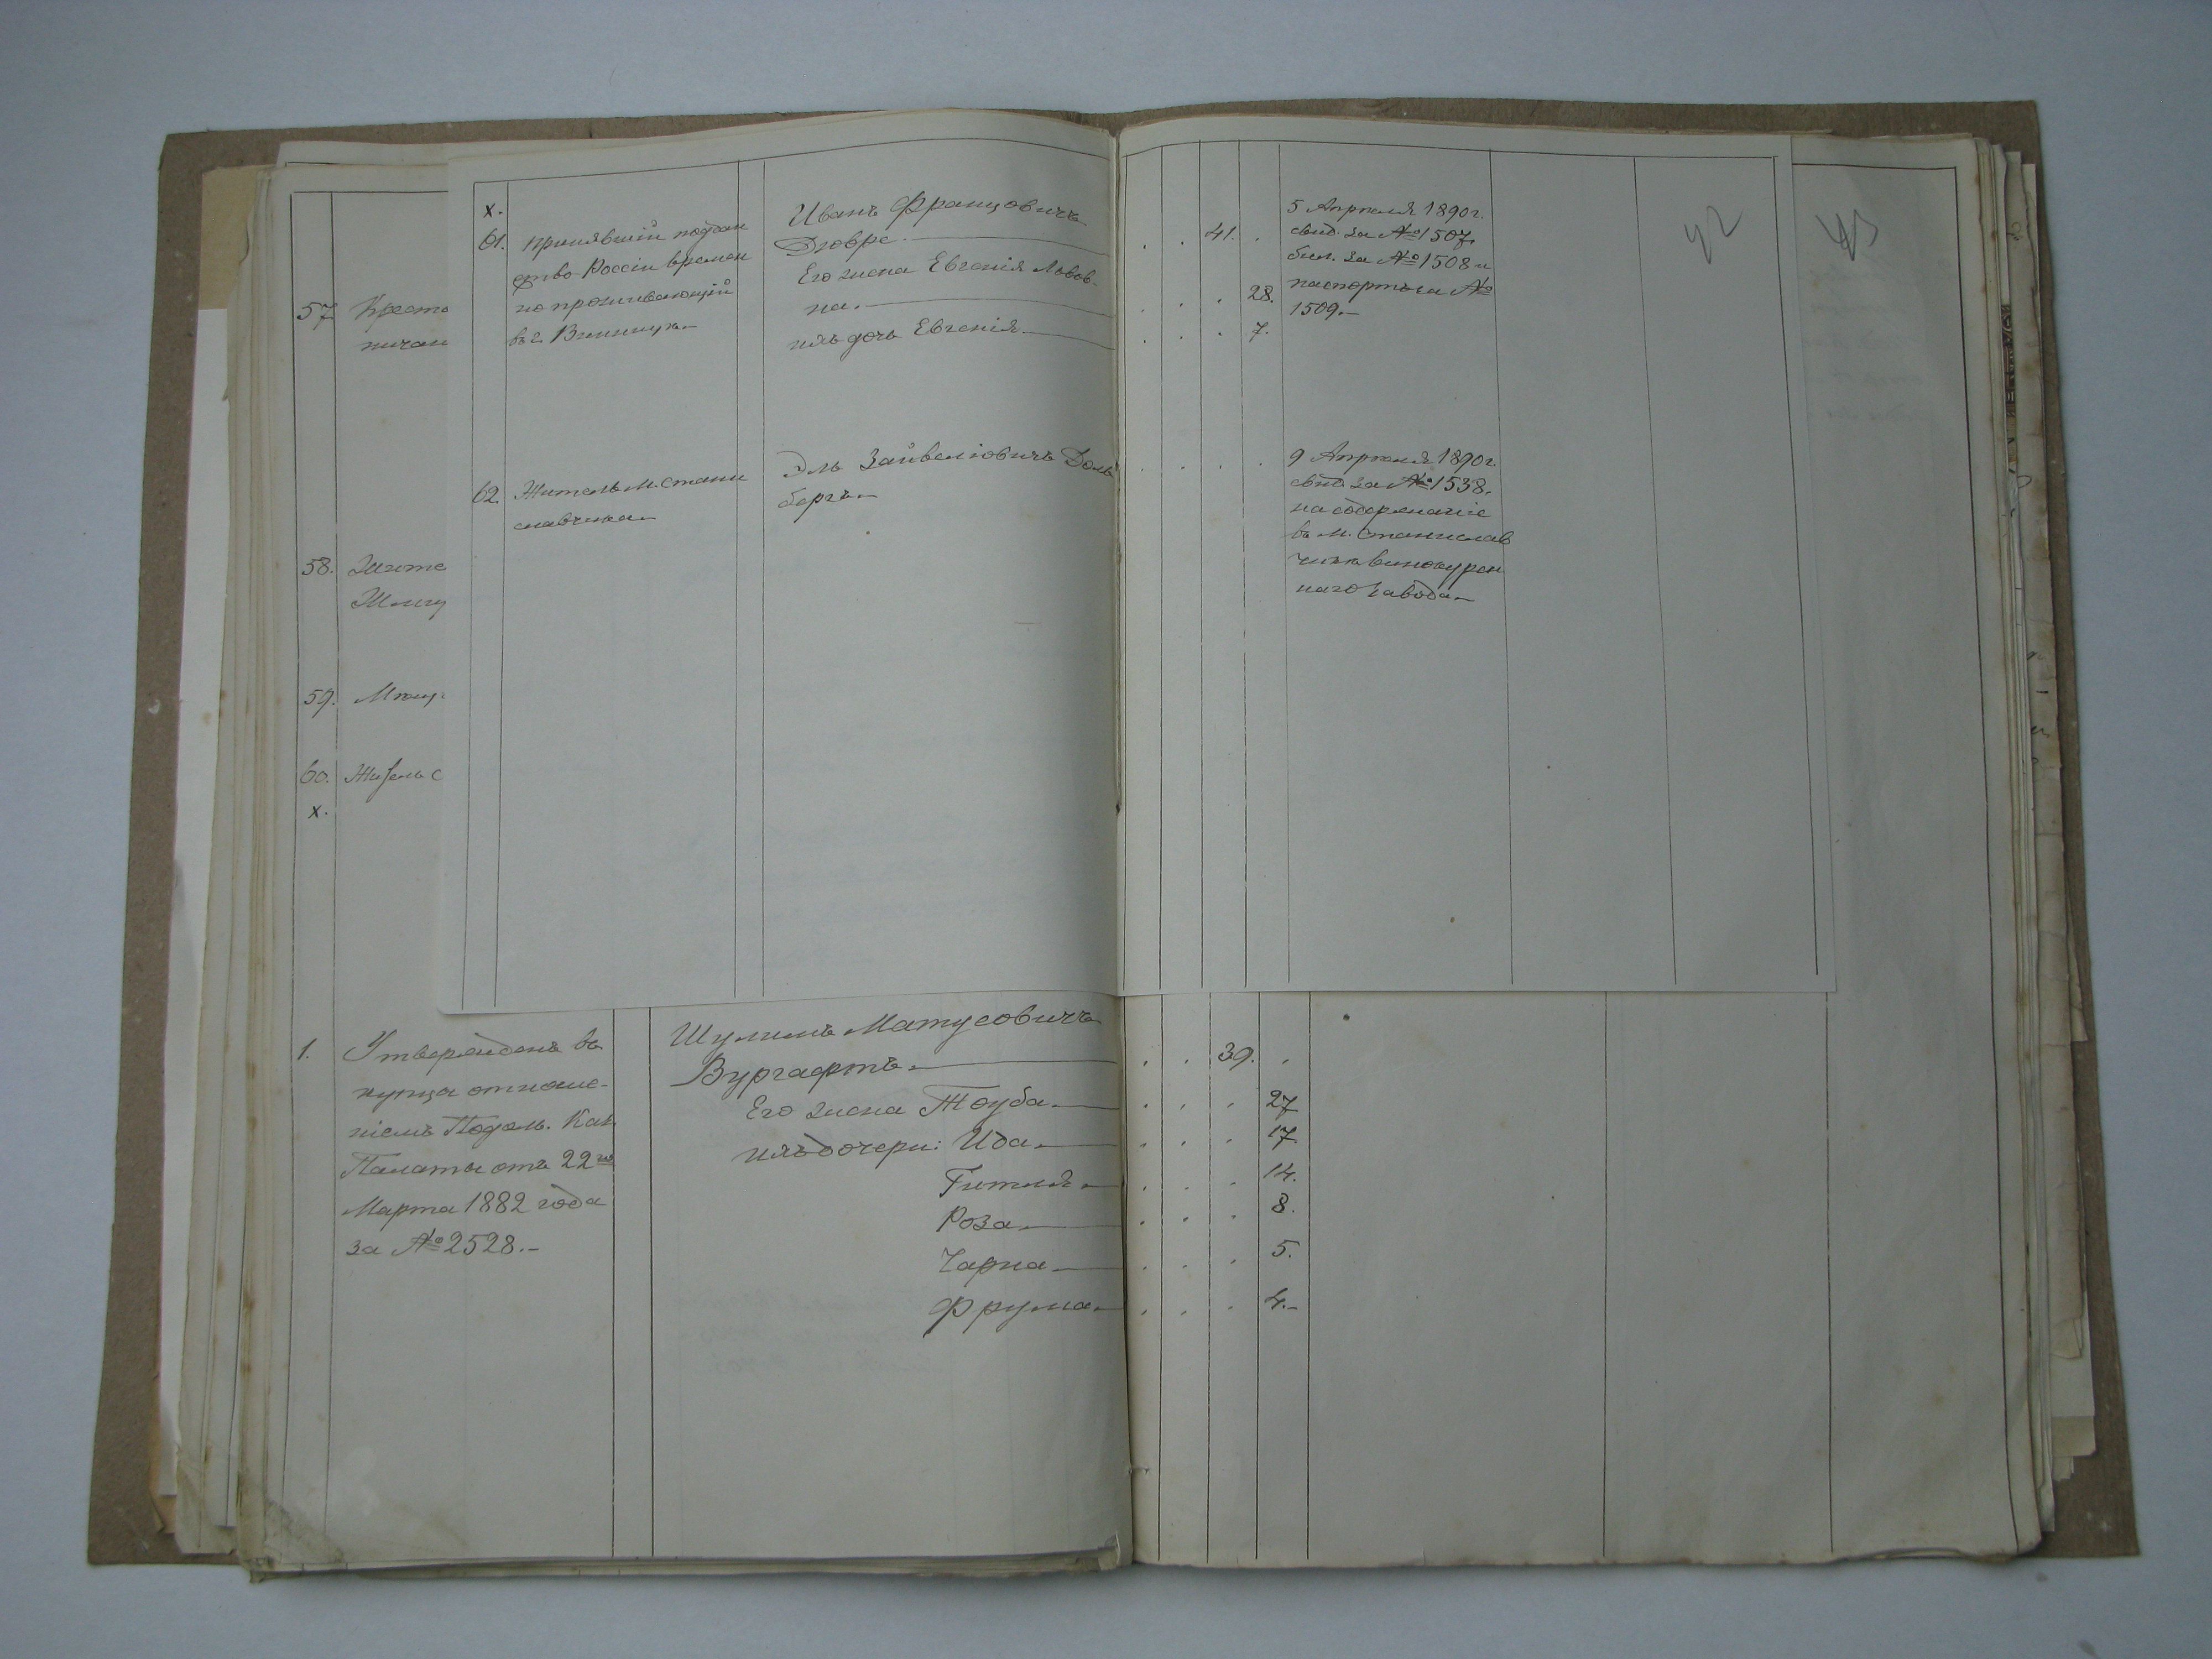 х.
61. Принявшій поддан
ство Россіи времен
но проживающій
въ г. Винницѣ.
Иванъ Францовичъ
Дювре.
Его жена Евгенія Львов-
на.
ихъ дочь Евгенія.
41.
28.
7.
5 Апрѣля 1890 г.
свид. за № 1507.
бил. за № 1508 и
паспортъ за №
1509.
42
43
62. Житель м. Стани
славчика
Эль Зайвеліовичъ Доль
бергъ
9 Апрѣля 1890 г.
свид. за № 1538.
на содержаніе
въ м. Станислав
чикѣ винокурен
наго завода
57 Крестья
58. Жите
59. Мѣщ
60. Житель с
х.
1. Утвержденъ въ
купца отноше-
ніемъ Подол. Каз.
Палаты отъ 22го
Марта 1882 года
за № 2528.
Шулимъ Матусовичъ
Вургафтъ. 39.
Его жена Тоуба 27
ихъ дочери: Ида 17
Гитля 14.
Роза 8.
Чарна 5.
Фрума 4.